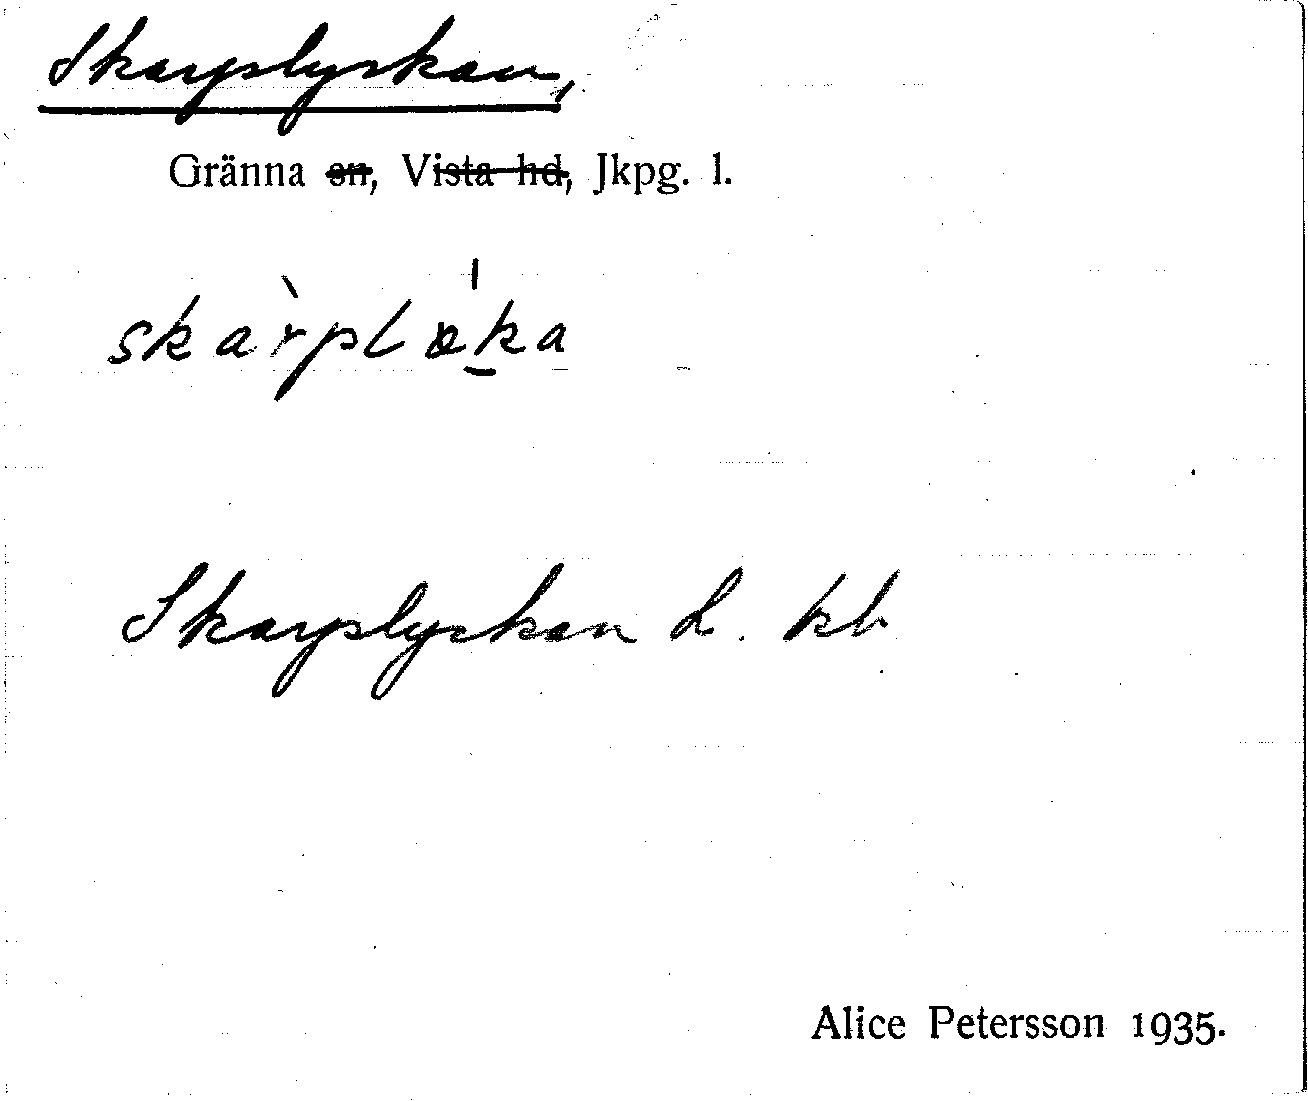 Skarplyckan,
Gränna sn, Vista hd, Jkpg. l.
skàrplø̀ka
Skarplyckan L. kb
Alice Petersson 1935.